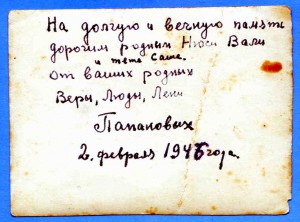 На долгую и вечную память
дорогим родным Нюси Вали
и тёте Саше.
от ваших родных
Веры, Люды, Лени
Папановых
2. февраля 194 года.